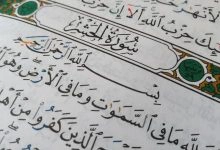 حِزْبُ ٱللَّهِ أَلَآ إِنَّ حِزْبَ
سُورَةُ الحَشْرِ
بِسْمِ ٱللَّهِ ٱلرَّحْمَٰنِ
لِلَّهِ مَا فِى ٱلسَّمَٰوَٰتِ وَمَا فِى ٱلْأَرْضِ وَهُوَ
ٱلَّذِينَ كَفَرُوا۟ مِنْ أَهْلِ